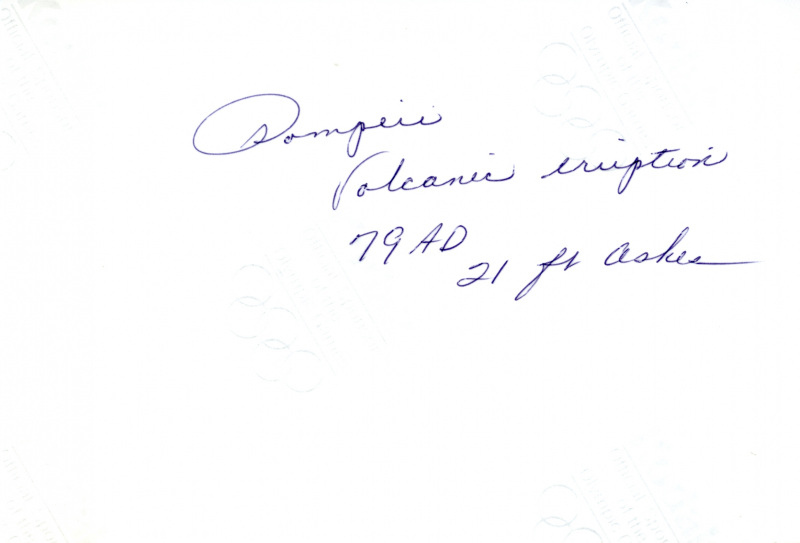 Pompeii
Volcanic eruption
79 AD
21 ft ashes